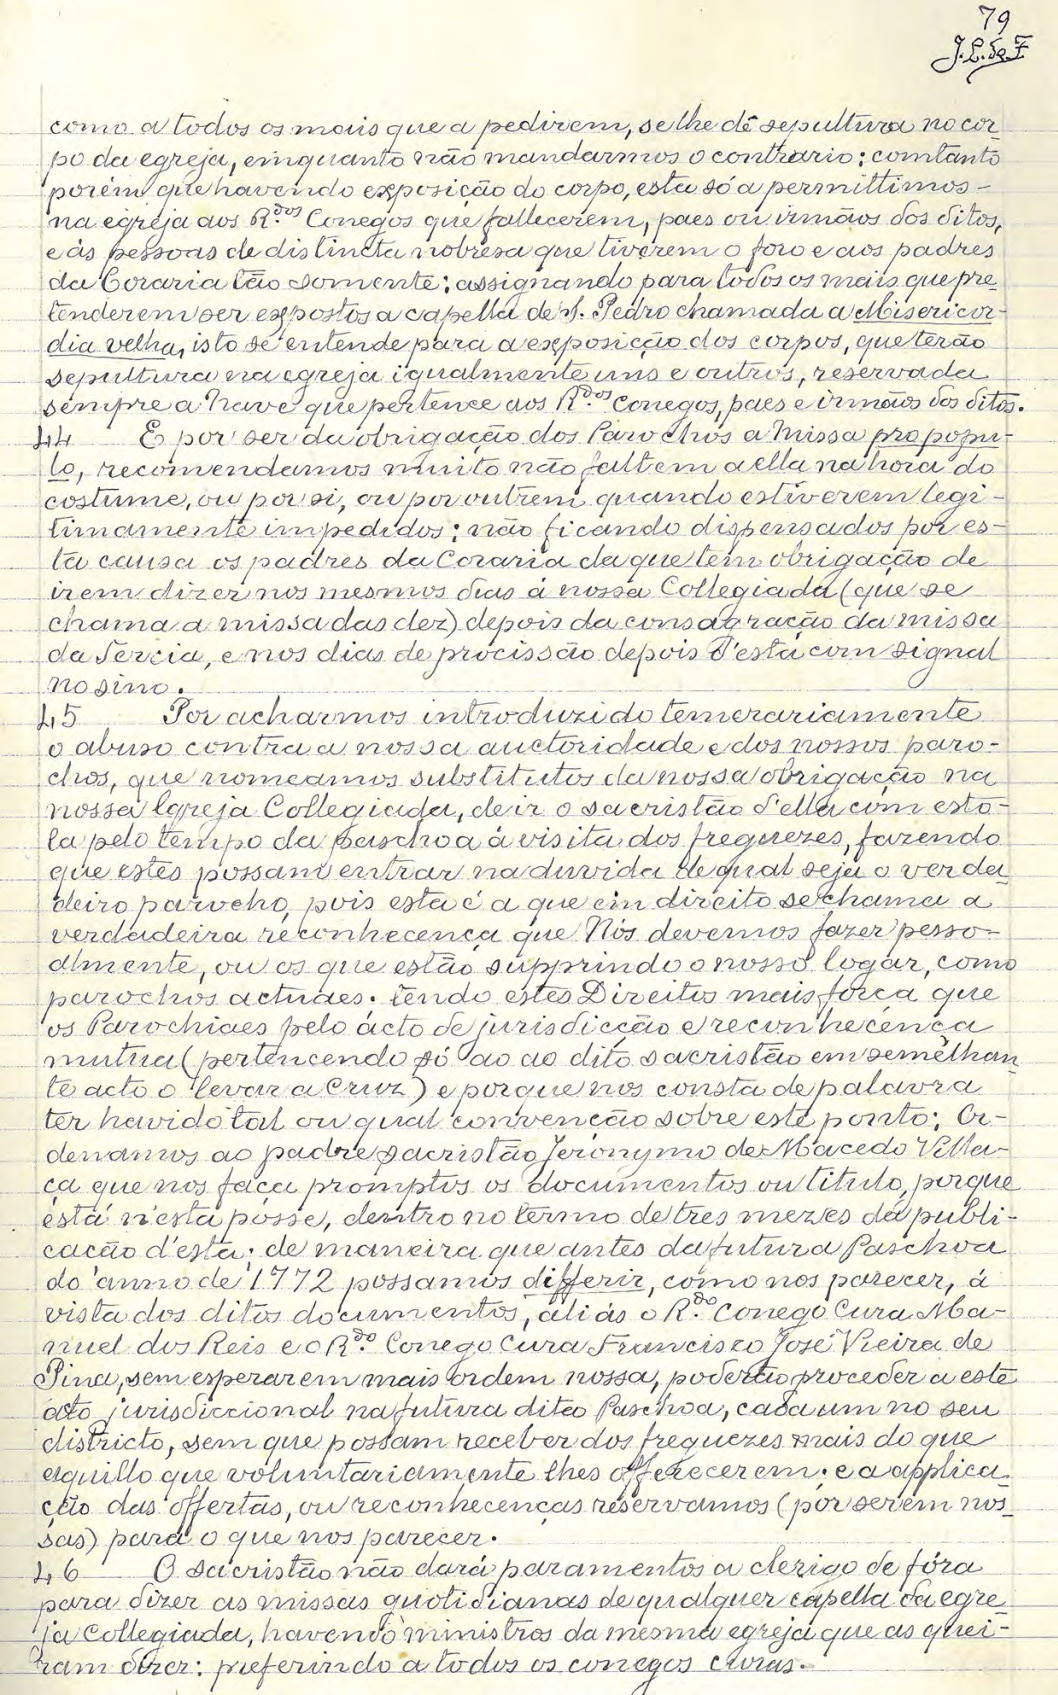 79
J. L. de F
como a todos os mais que a pedirem, se lhe dê sepultura no cor-
po da egreja, emquanto não mandarmos o contrario; comtanto
porém que havendo exposição do corpo, esta só a permittimos -
na egreja aos R.dos Conegos que fallecerem, paes ou irmãos dos ditos,
e ás pessoas de distincta nobresa que tiverem o foro e aos padres
da Coraria tão somente; assignando para todos os mais que pre-
tenderem ser expostos a capella de S. Pedro chamada a Misericor-
dia velha, isto se entende para a exposição dos corpos, que terão
sepultura na egreja igualmente uns e outros, reservada
sempre a nave que pertence aos R.dos Conegos, paes e irmãos dos ditos.
44 E por ser da obrigação dos Parochos a Missa pro popu-
lo, recomendamos muito não faltem a ella na hora do
costume, ou por si, ou por outrem quando estiverem legi-
timamente impedidos; não ficando dispensados por es-
ta causa os padres da Coraria da que tem obrigação de
irem dizer nos mesmos dias á nossa Collegiada (que se
chama a missa das dez) depois da consagração da missa
da Tercia, e nos dias de procissão depois d'esta com signal
no sino.
45 Por acharmos introduzido temerariamente
o abuso contra a nossa auctoridade e dos nossos paro-
chos, que nomeamos substitutos da nossa obrigação na
nossa Igreja Collegiada, de ir o sacristão d'ella com esto-
la pelo tempo da paschoa á visita dos freguezes, fazendo
que estes possam entrar na duvida de qual seja o verda-
deiro parocho, pois esta é a que em direito se chama a
verdadeira reconhecença que Nós devemos fazer pesso-
almente, ou os que estão supprindo o nosso logar, como
parochos actuaes. tendo estes Direitos mais força que
os Parochiaes pelo ácto de jurisdicção e reconhecença
mutua (pertencendo só ao ao dito sacristão em semelhan-
te acto o levar a Cruz) e porque nos consta de palavra
ter havido tal ou qual convenção sobre este ponto; Or-
denamos ao padre sacristão Jeronymo de Macedo Villa-
ça que nos faça promptos os documentos ou titulo, porque
está n'esta posse, dentro no termo de tres mezes da publi-
cação d'esta; de maneira que antes da futura Paschoa
do anno de 1772 possamos differir, como nos parecer, á
vista dos ditos documentos, aliás o R.do Conego Cura Ma-
nuel dos Reis e o R.do Conego Cura Francisco José Vieira de
Pina, sem esperarem mais ordem nossa, poderão proceder a este
acto jurisdiccional na futura dita Paschoa, cada um no seu
districto, sem que possam receber dos freguezes mais do que
aquillo que voluntariamente lhes offerecerem; e a applica-
ção das offertas, ou reconhecenças reservamos (por serem nos-
sas) para o que nos parecer.
46 O sacristão não dará paramentos a clerigo de fóra
para dizer as missas quotidianas de qualquer capella da egre-
ja Collegiada, havendo ministros da mesma egreja que as quei-
ram dizer: preferindo a todos os conegos curas.